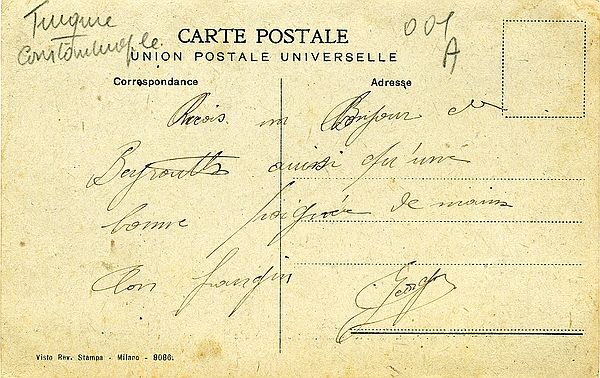 Turquie
Constantinople
001
A
CARTE POSTALE
UNION POSTALE UNIVERSELLE
Correspondance
Adresse
Reçois un Bonjour de
Beyrouth aussi qu'une
bonne poignée de mains
Ton frangin
Visto Rev. Stampa - Milano - 9086.